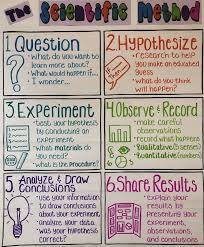 The Scientific Method
1. Question
• What do you want to
learn more about?
• What would happen if...
• I wonder...
2. Hypothesize
• research to help
you make an educated
guess
• what do you think
will happen?
3. Experiment
• test your hypothesis
by conducting an
experiment
• What materials do
you need?
• What is the procedure?
4. Observe & Record
• make careful
observations
• record what happens
• Qualitative (5 senses)
• Quantitative (numbers)
5. Analyze & Draw
Conclusions
• use your information
to draw conclusions
about your experiment
• Analyze your data
• Was your hypothesis
correct?
6. Share Results
• Explain your
results by
presenting your
experiment,
observations,
and conclusions